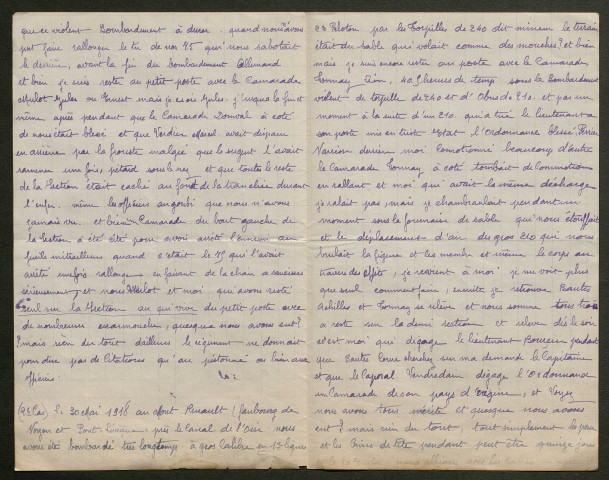 que ce violent Bombardement à durer. quand nous avons
put faire rallonger le tir de nos 75 qui nous sabotait
le derrière, avant la fin du bombardement Allemand
et bien je suis resté au petit poste avec le Camarade
Jules ou Ernest mais je crois Jules, jusqu'à la fin et
même après pendant que le Camarade Donval à coté
de nous était blessé et que Verdier Marcel avait disparu
en arrière par la frousse malgré que le sergent l'avait
ramener une fois, pétard sous le nez et que toute le reste
de la Section était caché au fond de la tranchée durant
l'enfer. même les officiers au gourbi que nous n'avons
jamais vu. et bien Camarade du bout gauche de
la Section à été cité pour avoir arrêté l'ennemi au
fusil mitrailleur quand c'était le 75 qui l'avait
arrêté une fois rallonger en faisant de la chair a saucisses
sérieusement, et nous et moi qui avons resté
seul sur la Section au qui vive du petit poste avec
de nombreuses escarmouches, quesque nous avons eut?
mais rien du tout d'ailleurs le régiment ne donnait
pour dire pas de Citations qu'au pistonné ou bien aux
officiers.
(2e Cas) Le 30 Mai 1918 au Mont Renault (faubourg de
Noyon et Pont près le Canal de l'Oise nous
avons été bombardé très longtemps à gros Calibre en 1re lignes
2e Peloton par les Torpilles de 240 dit minem le terrain
était du sable qui volait comme des mouches? et bien
mais je suis encore resté au poste avec le Camarade
Tonnay 40 heures de temps sous le Bombardement
violent de torpille de 240 et d'Obus de 210. et par un
moment à la suite d'un 210. qui a tué le lieutenant a
son poste mis en triste état l'Ordonnance blessé
derrière moi Comotionné beaucoup d'autre
le Camarade Tonnay à coté tombait de Commotion
en rallant et moi qui avait la même décharge
je ralait pas, mais je chambranlait pendant un
moment sous le fournaise de sable qui nous étouffait
et le déplacement d'air des gros 210 qui nous
brulait la figure et les membre et même le corps au
travers des effets, je revient à moi je me voit plus
que seul comment faire, ensuite je retrouve
Achilles et Tonnay se relève et nous somme tous trois
a resté sur la demi section et relevé dès le soir
c'est moi que dégage le lieutenant pendant
que l'autre chercher sur ma demande le Capitaine
et que le Caporal Vendredam dégage l'Ordonnance
un Camarade de son pays d'Origine, et
nous avons tous mérité et quesque nous avons
eut? mais rien du tout, tout simplement la peau
et les de tête pendant peut être quinze jours